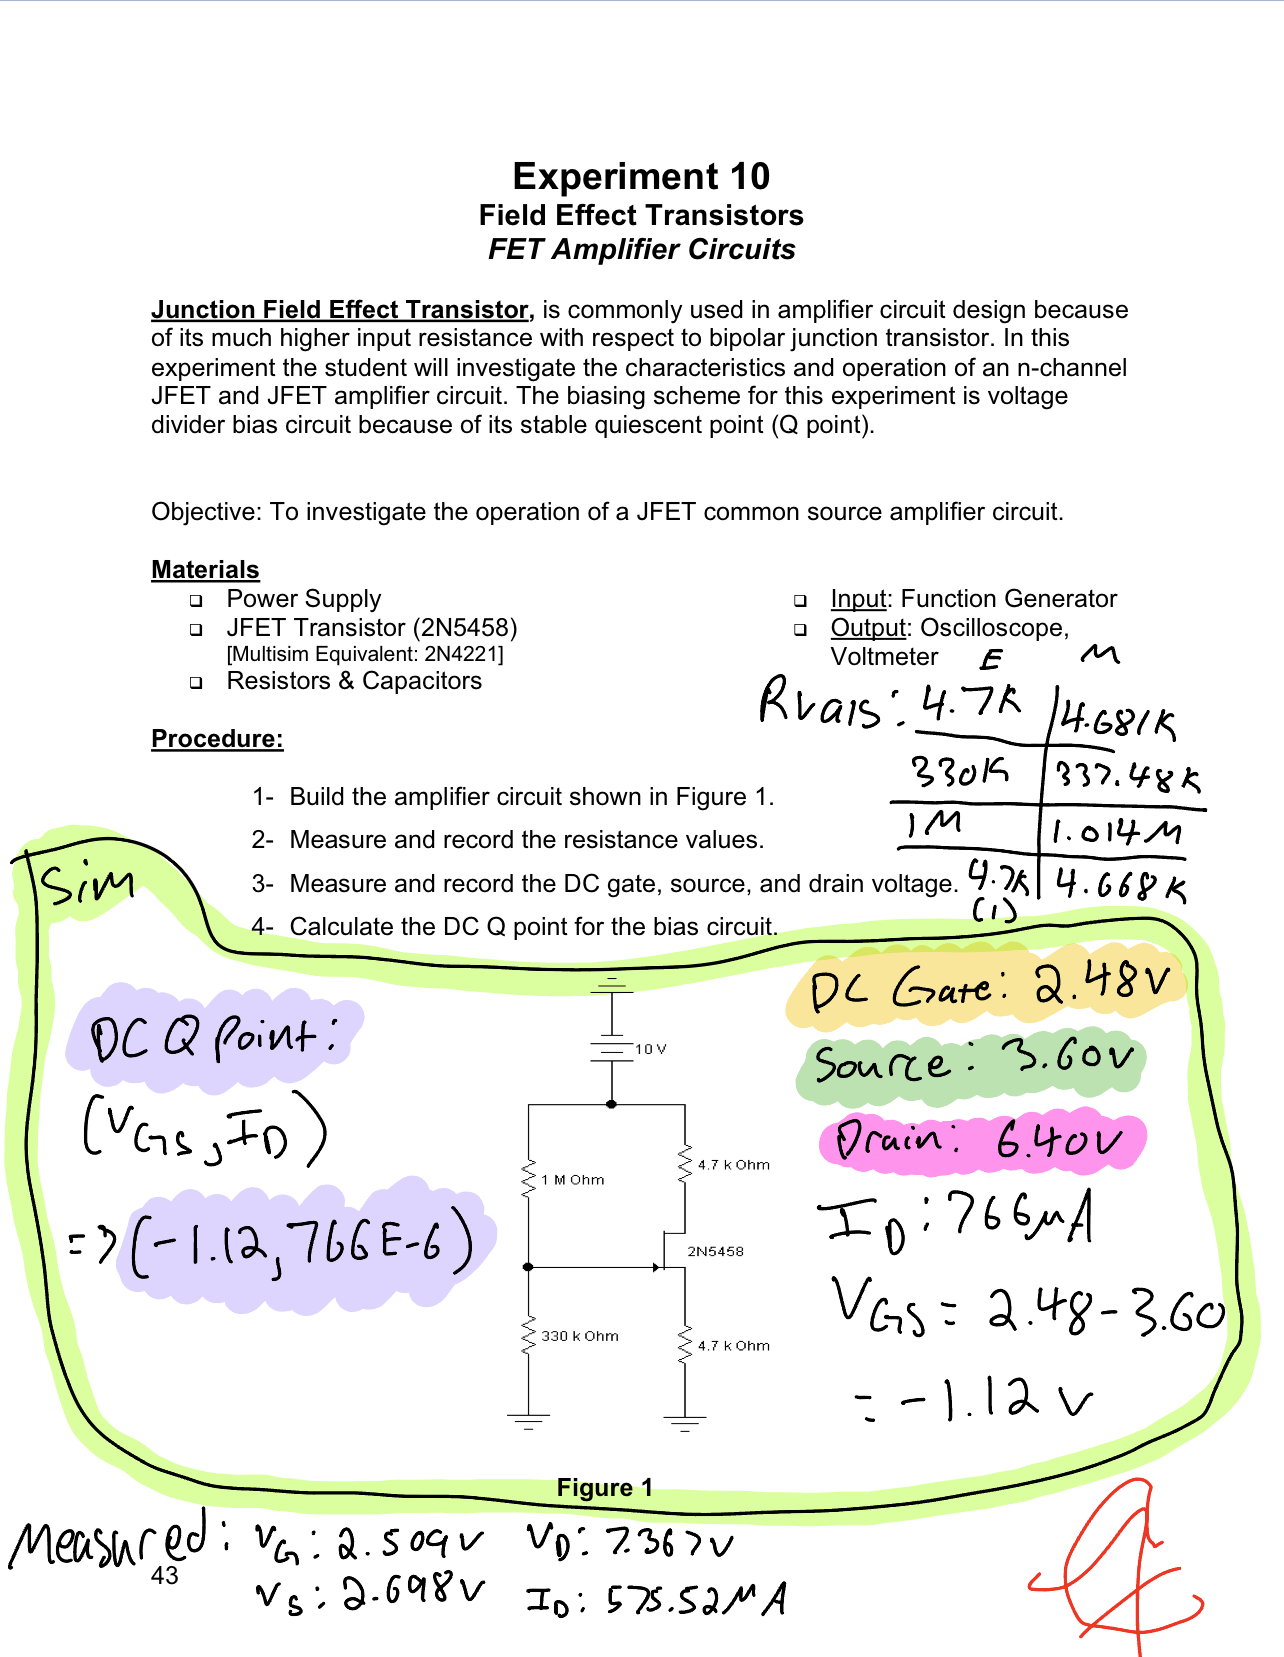 Experiment 10
Field Effect Transistors
FET Amplifier Circuits
Junction Field Effect Transistor, is commonly used in amplifier circuit design because
of its much higher input resistance with respect to bipolar junction transistor. In this
experiment the student will investigate the characteristics and operation of an n-channel
JFET and JFET amplifier circuit. The biasing scheme for this experiment is voltage
divider bias circuit because of its stable quiescent point (Q point).
Objective: To investigate the operation of a JFET common source amplifier circuit.
Materials
❑ Power Supply
❑ JFET Transistor (2N5458)
[Multisim Equivalent: 2N4221]
❑ Resistors & Capacitors
❑ Input: Function Generator
❑ Output: Oscilloscope,
Voltmeter
E M
Rvals: 4.7K 4.681K
330K 337.48K
1M 1.014M
4.7K 4.668K
(1)
Procedure:
1- Build the amplifier circuit shown in Figure 1.
2- Measure and record the resistance values.
3- Measure and record the DC gate, source, and drain voltage.
4- Calculate the DC Q point for the bias circuit.
Sim
DC Q Point:
(VGS, ID)
=> (-1.12, 766E-6)
10 V
4.7 k Ohm
1 M Ohm
2N5458
330 k Ohm
4.7 k Ohm
DC Gate: 2.48V
Source: 3.60V
Drain: 6.40V
ID: 766μA
VGS = 2.48-3.60
= -1.12 V
Figure 1
Measured: VG: 2.509V VD: 7.367V
VS: 2.698V ID: 575.52MA
43